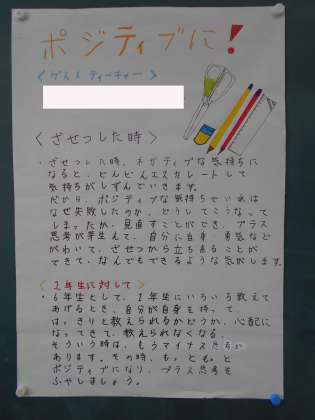 ポジティブに！
〈ゲストティーチャー〉
〈ざせつした時〉
・ざせつした時、ネガティブな気持ちに
なると、どんどんエスカレートして
気持ちがしずんでいきます。
だから、ポジティブな気持ちでいれば
なぜ失敗したのか、どうしてこうなって
しまったか、見直すことができ、プラス
思考が芽生えて、自分に自身、勇気など
がわいて、ざせつから立ち直ることが
できて、なんでもできるような気がします。
〈1年生に対して〉
・6年生として、1年生にいろいろ教えて
あげるとき、自分が自身を持って、
はっきりと教えられるかどうか、心配に
なってきて、教えられなくなる、
そういう時は、もうマイナス
あります。その時、もっともっと
ポジティブになり、プラス思考を
ふやしましょう。